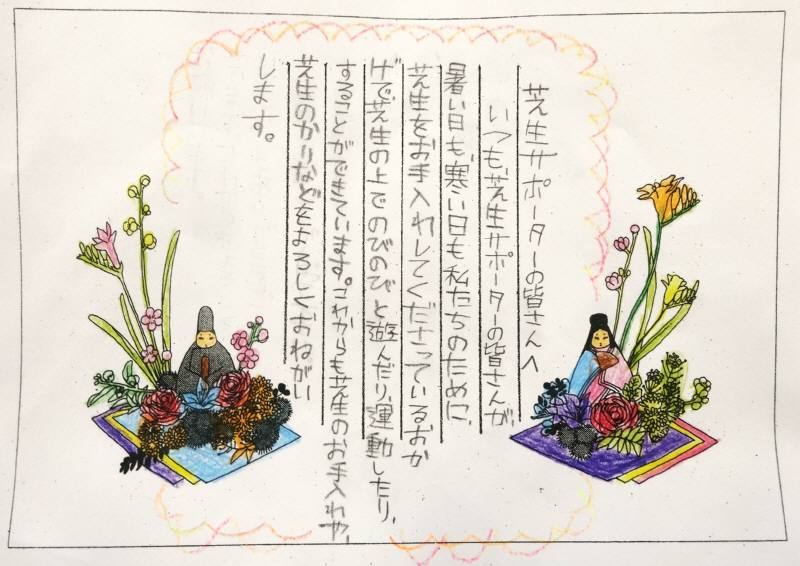 芝生サポーターの皆さんへ
いつも、芝生サポーターの皆さんが、
暑い日も、寒い日も私たちのために、
芝生をお手入れしてくださっているおか
げで芝生の上でのびのびと遊んだり、運動したり、
することができています。これからも芝生のお手入れや、
芝生のかりなどをよろしくおねがい
します。